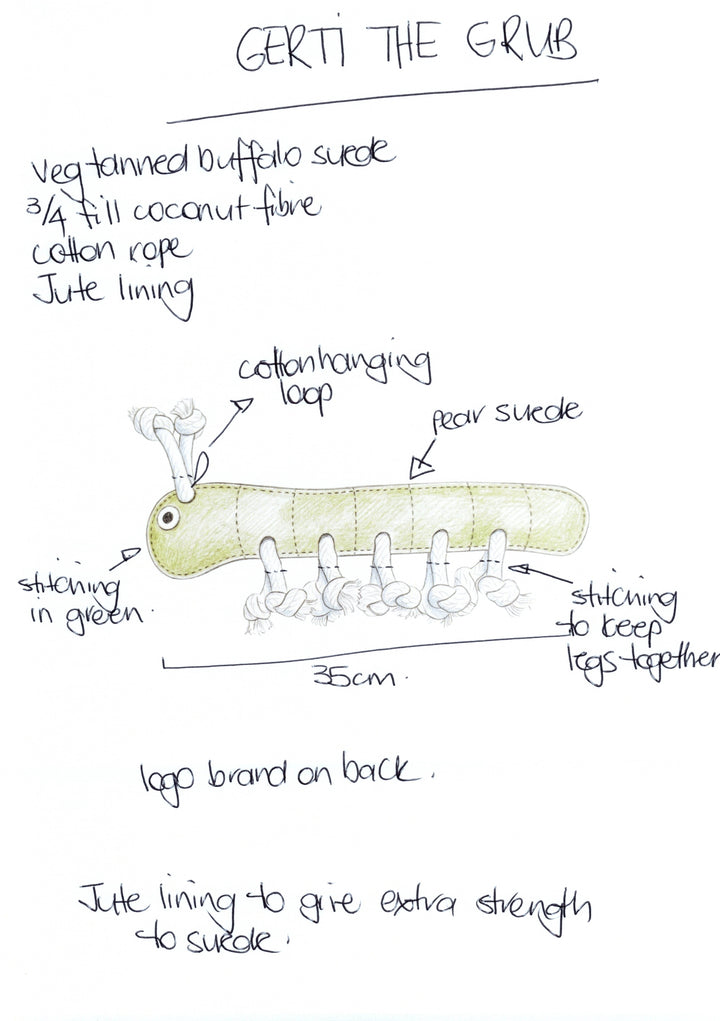 GERTi THE GRUB
Veg tanned buffalo suede
3/4 fill coconut fibre
cotton rope
Jute lining
cotton hanging
loop
pear suede
stitching
in green.
stitching
to keep
legs together
35cm.
logo brand on back.
Jute lining to give extra strength
to suede.